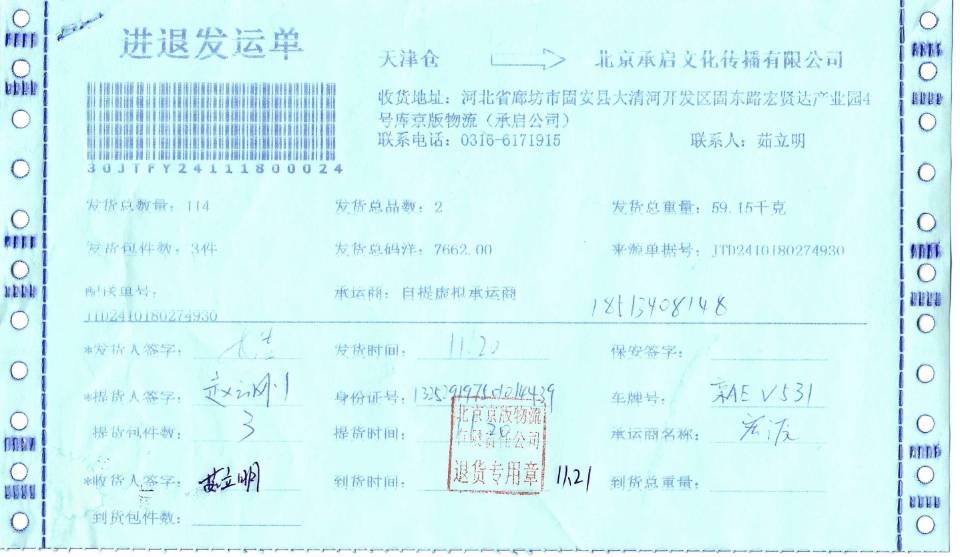 进退发运单
天津仓 北京承启文化传播有限公司
收货地址：河北省廊坊市固安县大清河开发区固东路宏贤达产业园4
号库京版物流（承启公司）
联系电话：0316-6171915 联系人：茹立明
30JTFY24111800024
发货总数量：114 发货总品数：2 发货总重量：59.15千克
发货包件数：3件 发货总码洋：7662.00 来源单据号：JTD2410180274930
配送单号： 承运商：自提虚拟承运商 18513408148
JTD2410180274930
*发货人签字： 发货时间： 11.20 保安签字：
*提货人签字： 身份证号： 车牌号： 京AEV531
提货包件数： 3 提货时间： 承运商名称：
北京京版物流
有限责任公司
退货专用章
*收货人签字： 茹立明 到货时间： 11.21 到货总重量：
到货包件数：